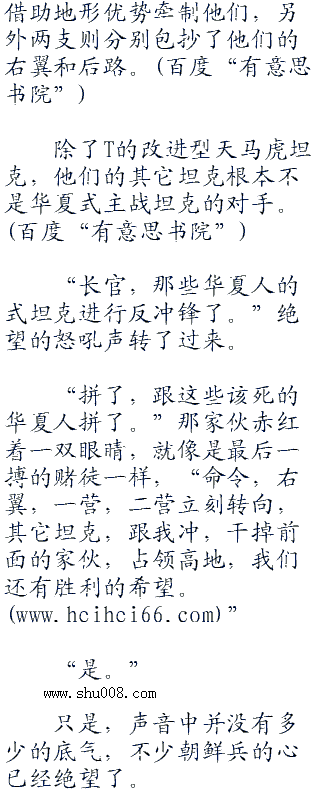 借助地形优势牵制他们，另
外两支则分别包抄了他们的
右翼和后路。(百度“有意思
书院”)
除了T的改进型天马虎坦
克，他们的其它坦克根本不
是华夏式主战坦克的对手。
(百度“有意思书院”)
“长官，那些华夏人的
式坦克进行反冲锋了。”绝
望的怒吼声转了过来。
“拼了，跟这些该死的
华夏人拼了。”那家伙赤红
着一双眼睛，就像是最后一
搏的赌徒一样，“命令，右
翼，一营，二营立刻转向，
其它坦克，跟我冲，干掉前
面的家伙，占领高地，我们
还有胜利的希望。
(www.hcihci66.com)”
“是。”
www.shu008.com
只是，声音中并没有多
少的底气，不少朝鲜兵的心
已经绝望了。